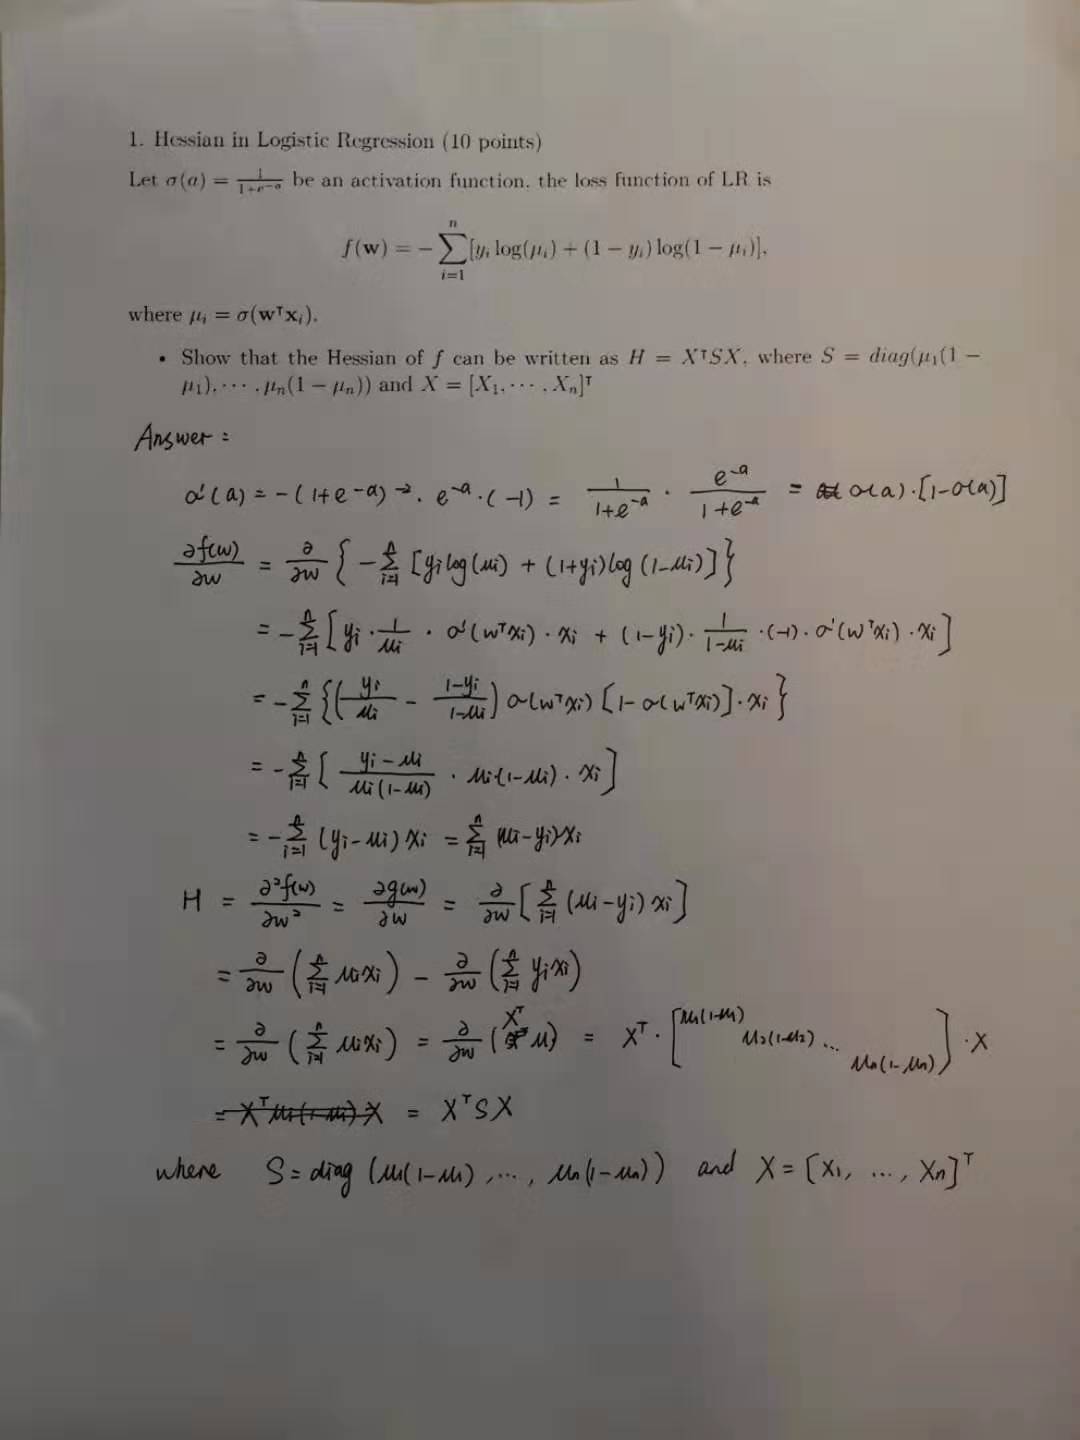 1. Hessian in Logistic Regression (10 points)
Let σ(a) = 1/(1+e^{-a}) be an activation function, the loss function of LR is
f(w) = − ∑_{i=1}^{n} [y_i log(μ_i) + (1 − y_i) log(1 − μ_i)],
where μ_i = σ(w^⊤x_i).
• Show that the Hessian of f can be written as H = X^⊤SX, where S = diag(μ_1(1 −
μ_1), · · · , μ_n(1 − μ_n)) and X = [X_1, · · · , X_n]^⊤
Answer:
σ'(a) = -(1+e^{-a})^{-2} · e^{-a} · (-1) = 1/(1+e^{-a}) · e^{-a}/(1+e^{-a}) = σ(a)·[1-σ(a)]
∂f(w)/∂w = ∂/∂w { -∑_{i=1}^{n} [y_i log(μ_i) + (1+y_i) log(1-μ_i)] }
= -∑_{i=1}^{n} [ y_i · 1/μ_i · σ'(w^T x_i) · x_i + (1-y_i) · 1/(1-μ_i) · (-1) · σ'(w^T x_i) · x_i ]
= -∑_{i=1}^{n} { ( y_i/μ_i - (1-y_i)/(1-μ_i) ) σ(w^T x_i) [1-σ(w^T x_i)] · x_i }
= -∑_{i=1}^{n} [ (y_i-μ_i)/(μ_i(1-μ_i)) · μ_i(1-μ_i) · x_i ]
= -∑_{i=1}^{n} (y_i-μ_i) x_i = ∑_{i=1}^{n} (μ_i-y_i) x_i
H = ∂²f(w)/∂w² = ∂g(w)/∂w = ∂/∂w [ ∑_{i=1}^{n} (μ_i-y_i) x_i ]
= ∂/∂w ( ∑_{i=1}^{n} μ_i x_i ) - ∂/∂w ( ∑_{i=1}^{n} y_i x_i )
= ∂/∂w ( ∑_{i=1}^{n} μ_i x_i ) = ∂/∂w ( X^T μ ) = X^T · [ μ_1(1-μ_1) μ_2(1-μ_2) ... μ_n(1-μ_n) ] · X
= X^T μ_i(1-μ_i) X = X^T S X
where S = diag (μ_1(1-μ_1), ..., μ_n(1-μ_n)) and X = [X_1, ..., X_n]^T